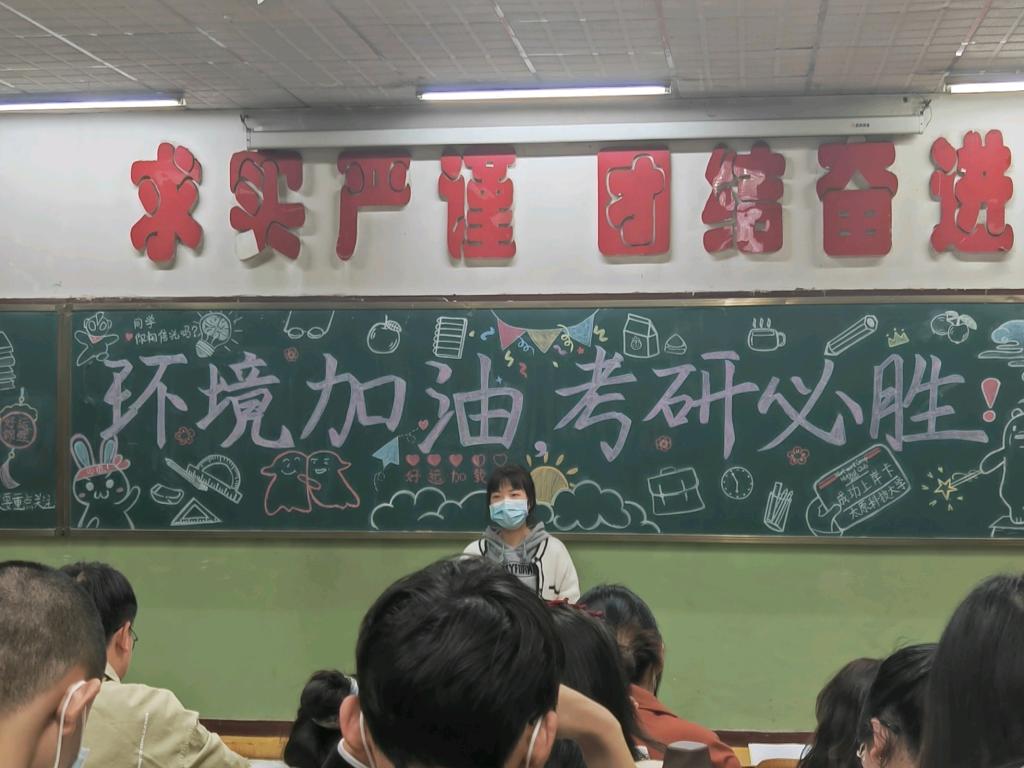 求实 严谨 团结 奋进
同学
你相信光吗?
环境加油,考研必胜!
好运加载
成功上岸卡
太原科技大学
MYFORM